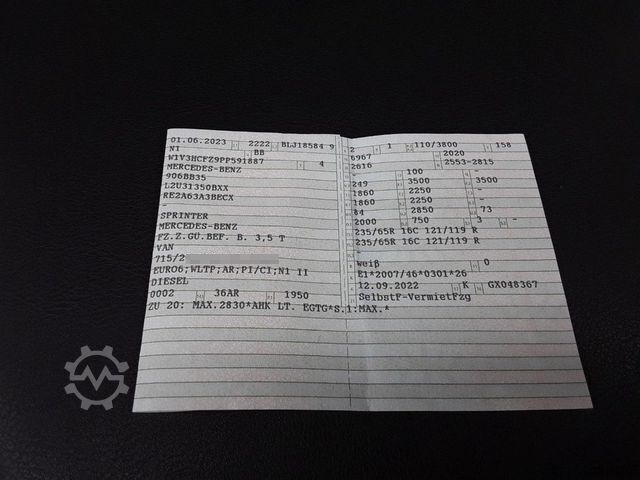 01.06.2023 2222 BLJ18584 9
N1 BB
W1V3HCFZ9PP591887 4
MERCEDES-BENZ
906BB35
L2U31350BXX
RE2A63A3BECX
-
SPRINTER
MERCEDES-BENZ
FZ.Z.GÜ.BEF. B. 3,5 T
VAN
715/2
EURO6;WLTP;AR;PI/CI;N1 II
DIESEL
0002 36AR 1950
ZU 20: MAX.2830*AHK LT. EGTG*S.1:MAX.*
2 1 110/3800 158
6967 2020
2616 2553-2815
- 100 -
249 3500 3500
1860 2250 -
1860 2250 -
84 2850 73
2000 750 3 -
235/65R 16C 121/119 R
235/65R 16C 121/119 R
-
weiβ 0
E1*2007/46*0301*26
12.09.2022 K GX048367
SelbstF-VermietFzg